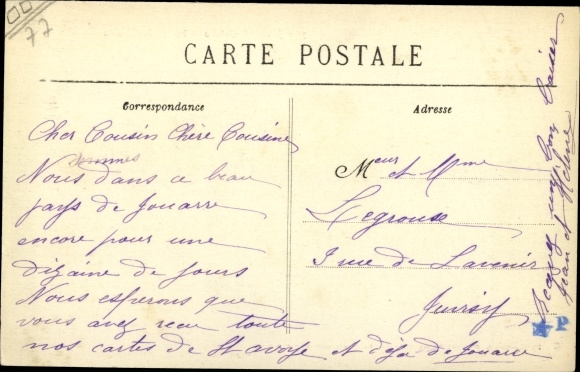 77
CARTE POSTALE
Correspondance
Adresse
Cher Cousin Chère Cousine
sommes
Nous dans ce beau
pays de Jouarre
encore pour une
dizaine de jours
Nous esperons que
vous avez recu toute
nos cartes de St avoye et deja de Jouarre
Meur et Mme
Legrouse
3 rue de Lavenir
Juvisy
Recevez nos bon baiser
Jean et Helene
P